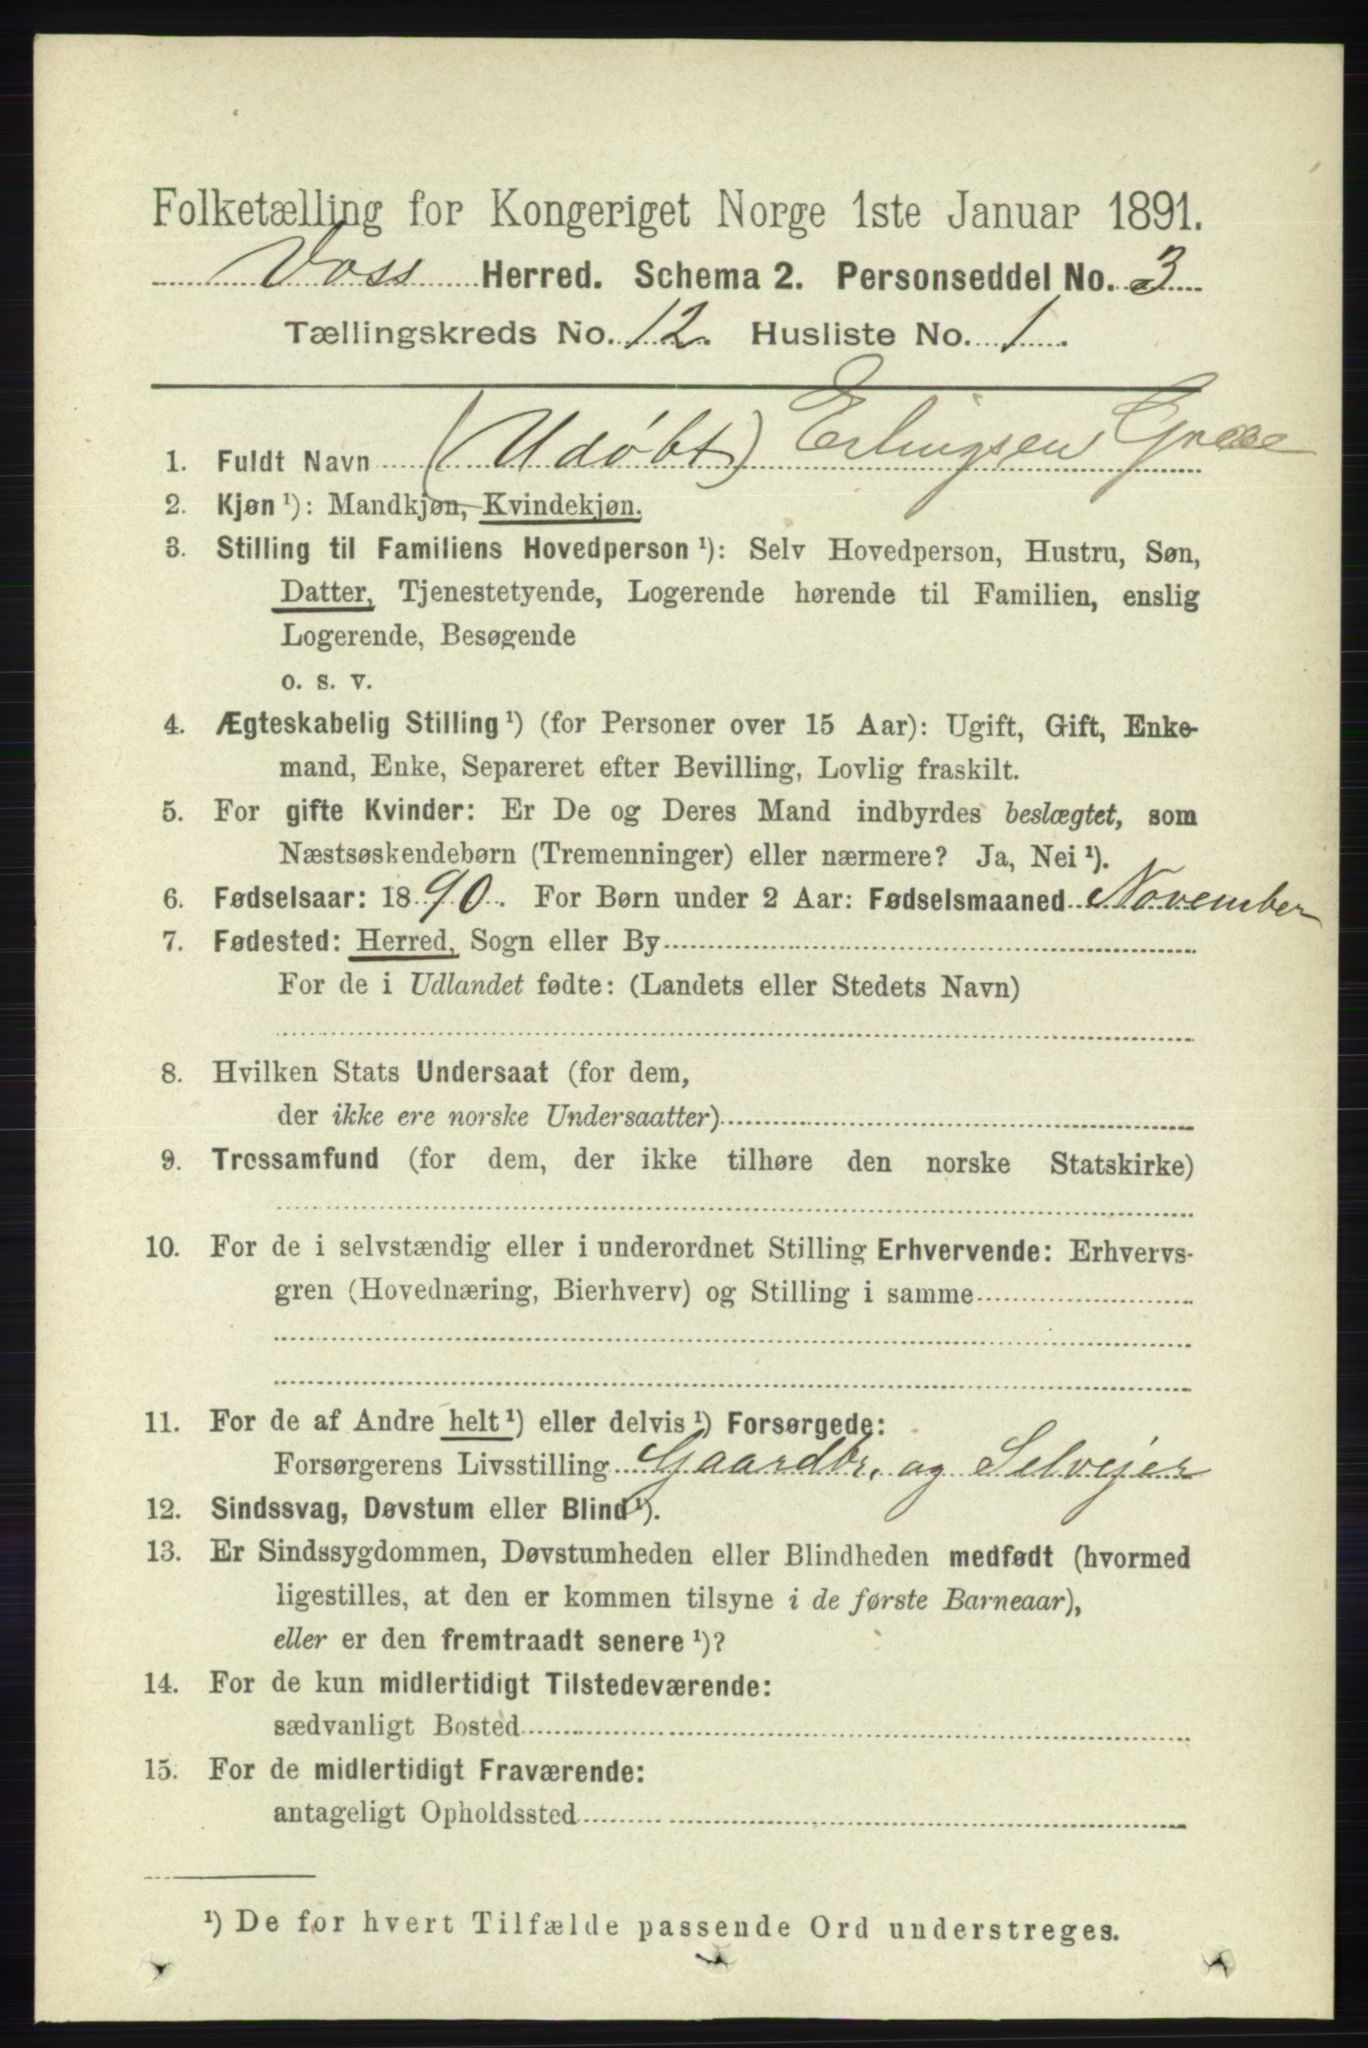 Folketælling for Kongeriget Norge 1ste Januar 1891.
Voss Herred. Schema 2. Personseddel No. 3
Tællingskreds No. 12. Husliste No. 1.
1. Fuldt Navn (Udøbt) Erlingsen
2. Kjøn¹): Mandkjøn, Kvindekjøn.
3. Stilling til Familiens Hovedperson¹): Selv Hovedperson, Hustru, Søn,
Datter, Tjenestetyende, Logerende hørende til Familien, enslig
Logerende, Besøgende
o. s. v.
4. Ægteskabelig Stilling¹) (for Personer over 15 Aar): Ugift, Gift, Enke-
mand, Enke, Separeret efter Bevilling, Lovlig fraskilt.
5. For gifte Kvinder: Er De og Deres Mand indbyrdes beslægtet, som
Næstsøskendebørn (Tremenninger) eller nærmere? Ja, Nei¹).
6. Fødselsaar: 1890. For Børn under 2 Aar: Fødselsmaaned November
7. Fødested: Herred, Sogn eller By
For de i Udlandet fødte: (Landets eller Stedets Navn)
8. Hvilken Stats Undersaat (for dem,
der ikke ere norske Undersaatter)
9. Trossamfund (for dem, der ikke tilhøre den norske Statskirke)
10. For de i selvstændig eller i underordnet Stilling Erhvervende: Erhvervs-
gren (Hovednæring, Bierhverv) og Stilling i samme
11. For de af Andre helt¹) eller delvis¹) Forsørgede:
Forsørgerens Livsstilling Gaardbr. og Selvejer
12. Sindssvag, Døvstum eller Blind¹).
13. Er Sindssygdommen, Døvstumheden eller Blindheden medfødt (hvormed
ligestilles, at den er kommen tilsyne i de første Barneaar),
eller er den fremtraadt senere¹)?
14. For de kun midlertidigt Tilstedeværende:
sædvanligt Bosted
15. For de midlertidigt Fraværende:
antageligt Opholdssted
¹) De for hvert Tilfælde passende Ord understreges.